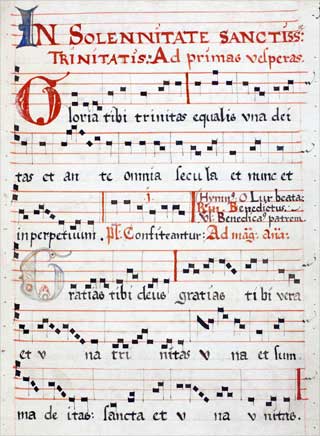 IN SOLENNITATE SANCTISS:
TRINITATIS: Ad primas vesperas.
Gloria tibi trinitas equalis vna dei
tas et an te omnia secula et nunc et
Hymnꝰ. O Lux beata:
Benedictus
inperpetuum. Ps. Confiteantur: Ad mag. Aña:
Benedicaꝰ patrem
Gratias tibi deus gratias tibi vera
et v na tri nitas v na et sum
ma deitas: sancta et v na v nitas.